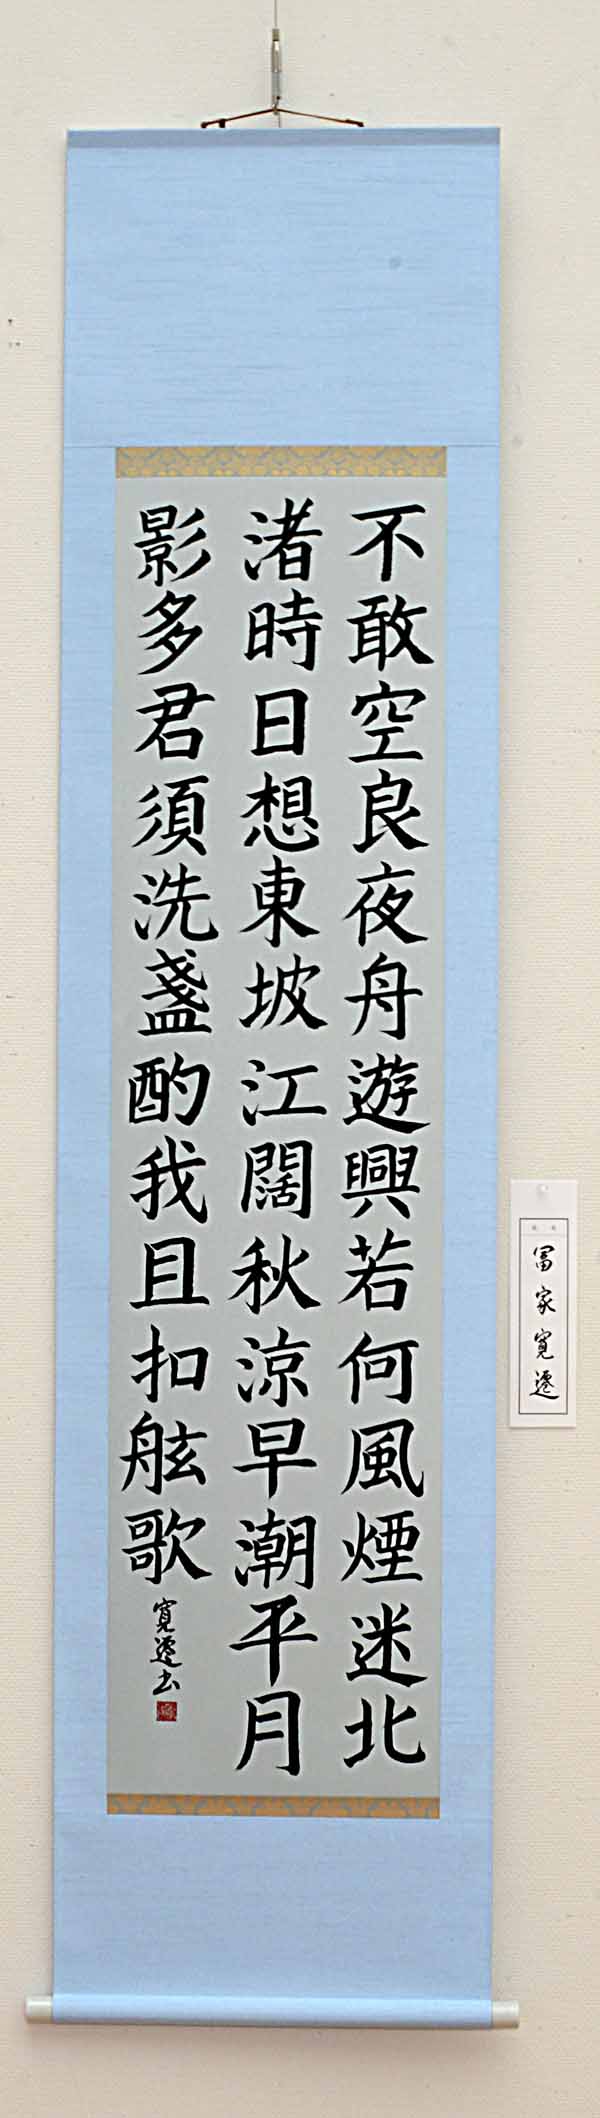 不敢空良夜舟遊興若何風煙迷北
渚時日想東坡江闊秋涼早潮平月
影多君須洗盞酌我且扣舷歌
寛遷書
冨家寛遷